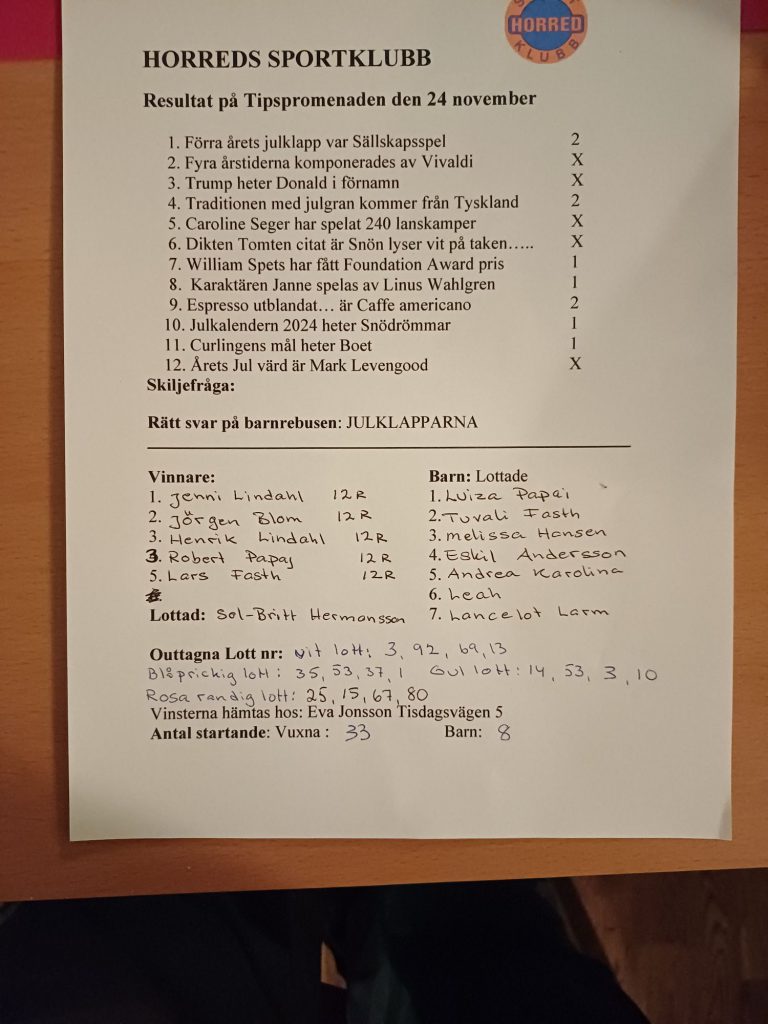 HORRED
KLUBB
HORREDS SPORTKLUBB
Resultat på Tipspromenaden den 24 november
1. Förra årets julklapp var Sällskapsspel 2
2. Fyra årstiderna komponerades av Vivaldi X
3. Trump heter Donald i förnamn X
4. Traditionen med julgran kommer från Tyskland 2
5. Caroline Seger har spelat 240 lanskamper X
6. Dikten Tomten citat är Snön lyser vit på taken….. X
7. William Spets har fått Foundation Award pris 1
8. Karaktären Janne spelas av Linus Wahlgren 1
9. Espresso utblandat… är Caffe americano 2
10. Julkalendern 2024 heter Snödrömmar 1
11. Curlingens mål heter Boet 1
12. Årets Jul värd är Mark Levengood X
Skiljefråga:
Rätt svar på barnrebusen: JULKLAPPARNA
Vinnare: Barn: Lottade
1. Jenni Lindahl 12R 1. Luiza Papai
2. Jörgen Blom 12R 2. Tuvali Fasth
3. Henrik Lindahl 12R 3. Melissa Hansen
3. Robert Papaj 12R 4. Eskil Andersson
5. Lars Fasth 12R 5. Andrea Karolina
6. Leah
Lottad: Sol-Britt Hermansson 7. Lancelot Larm
Outtagna Lott nr: Vit lott: 3, 92, 69, 13
Blåprickig lott: 35, 53, 37, 1 Gul lott: 14, 53, 3, 10
Rosa randig lott: 25, 15, 67, 80
Vinsterna hämtas hos: Eva Jonsson Tisdagsvägen 5
Antal startande: Vuxna : 33 Barn: 8